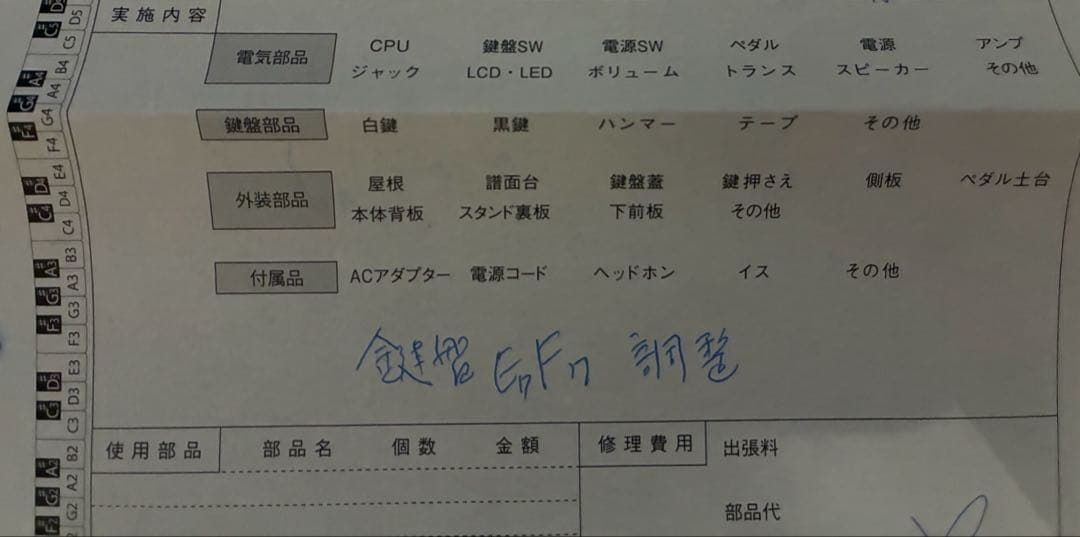 実施内容
電気部品 CPU 鍵盤SW 電源SW ペダル 電源 アンプ
ジャック LCD・LED ボリューム トランス スピーカー その他
鍵盤部品 白鍵 黒鍵 ハンマー テープ その他
外装部品 屋根 譜面台 鍵盤蓋 鍵押さえ 側板 ペダル土台
本体背板 スタンド裏板 下前板 その他
付属品 ACアダプター 電源コード ヘッドホン イス その他
鍵盤 調整
使用部品 部品名 個数 金額 修理費用 出張料
部品代
D5
C5
B4
A4
G4
F4
E4
D4
C4
B3
A3
G3
F3
E3
D3
C3
B2
A2
G2